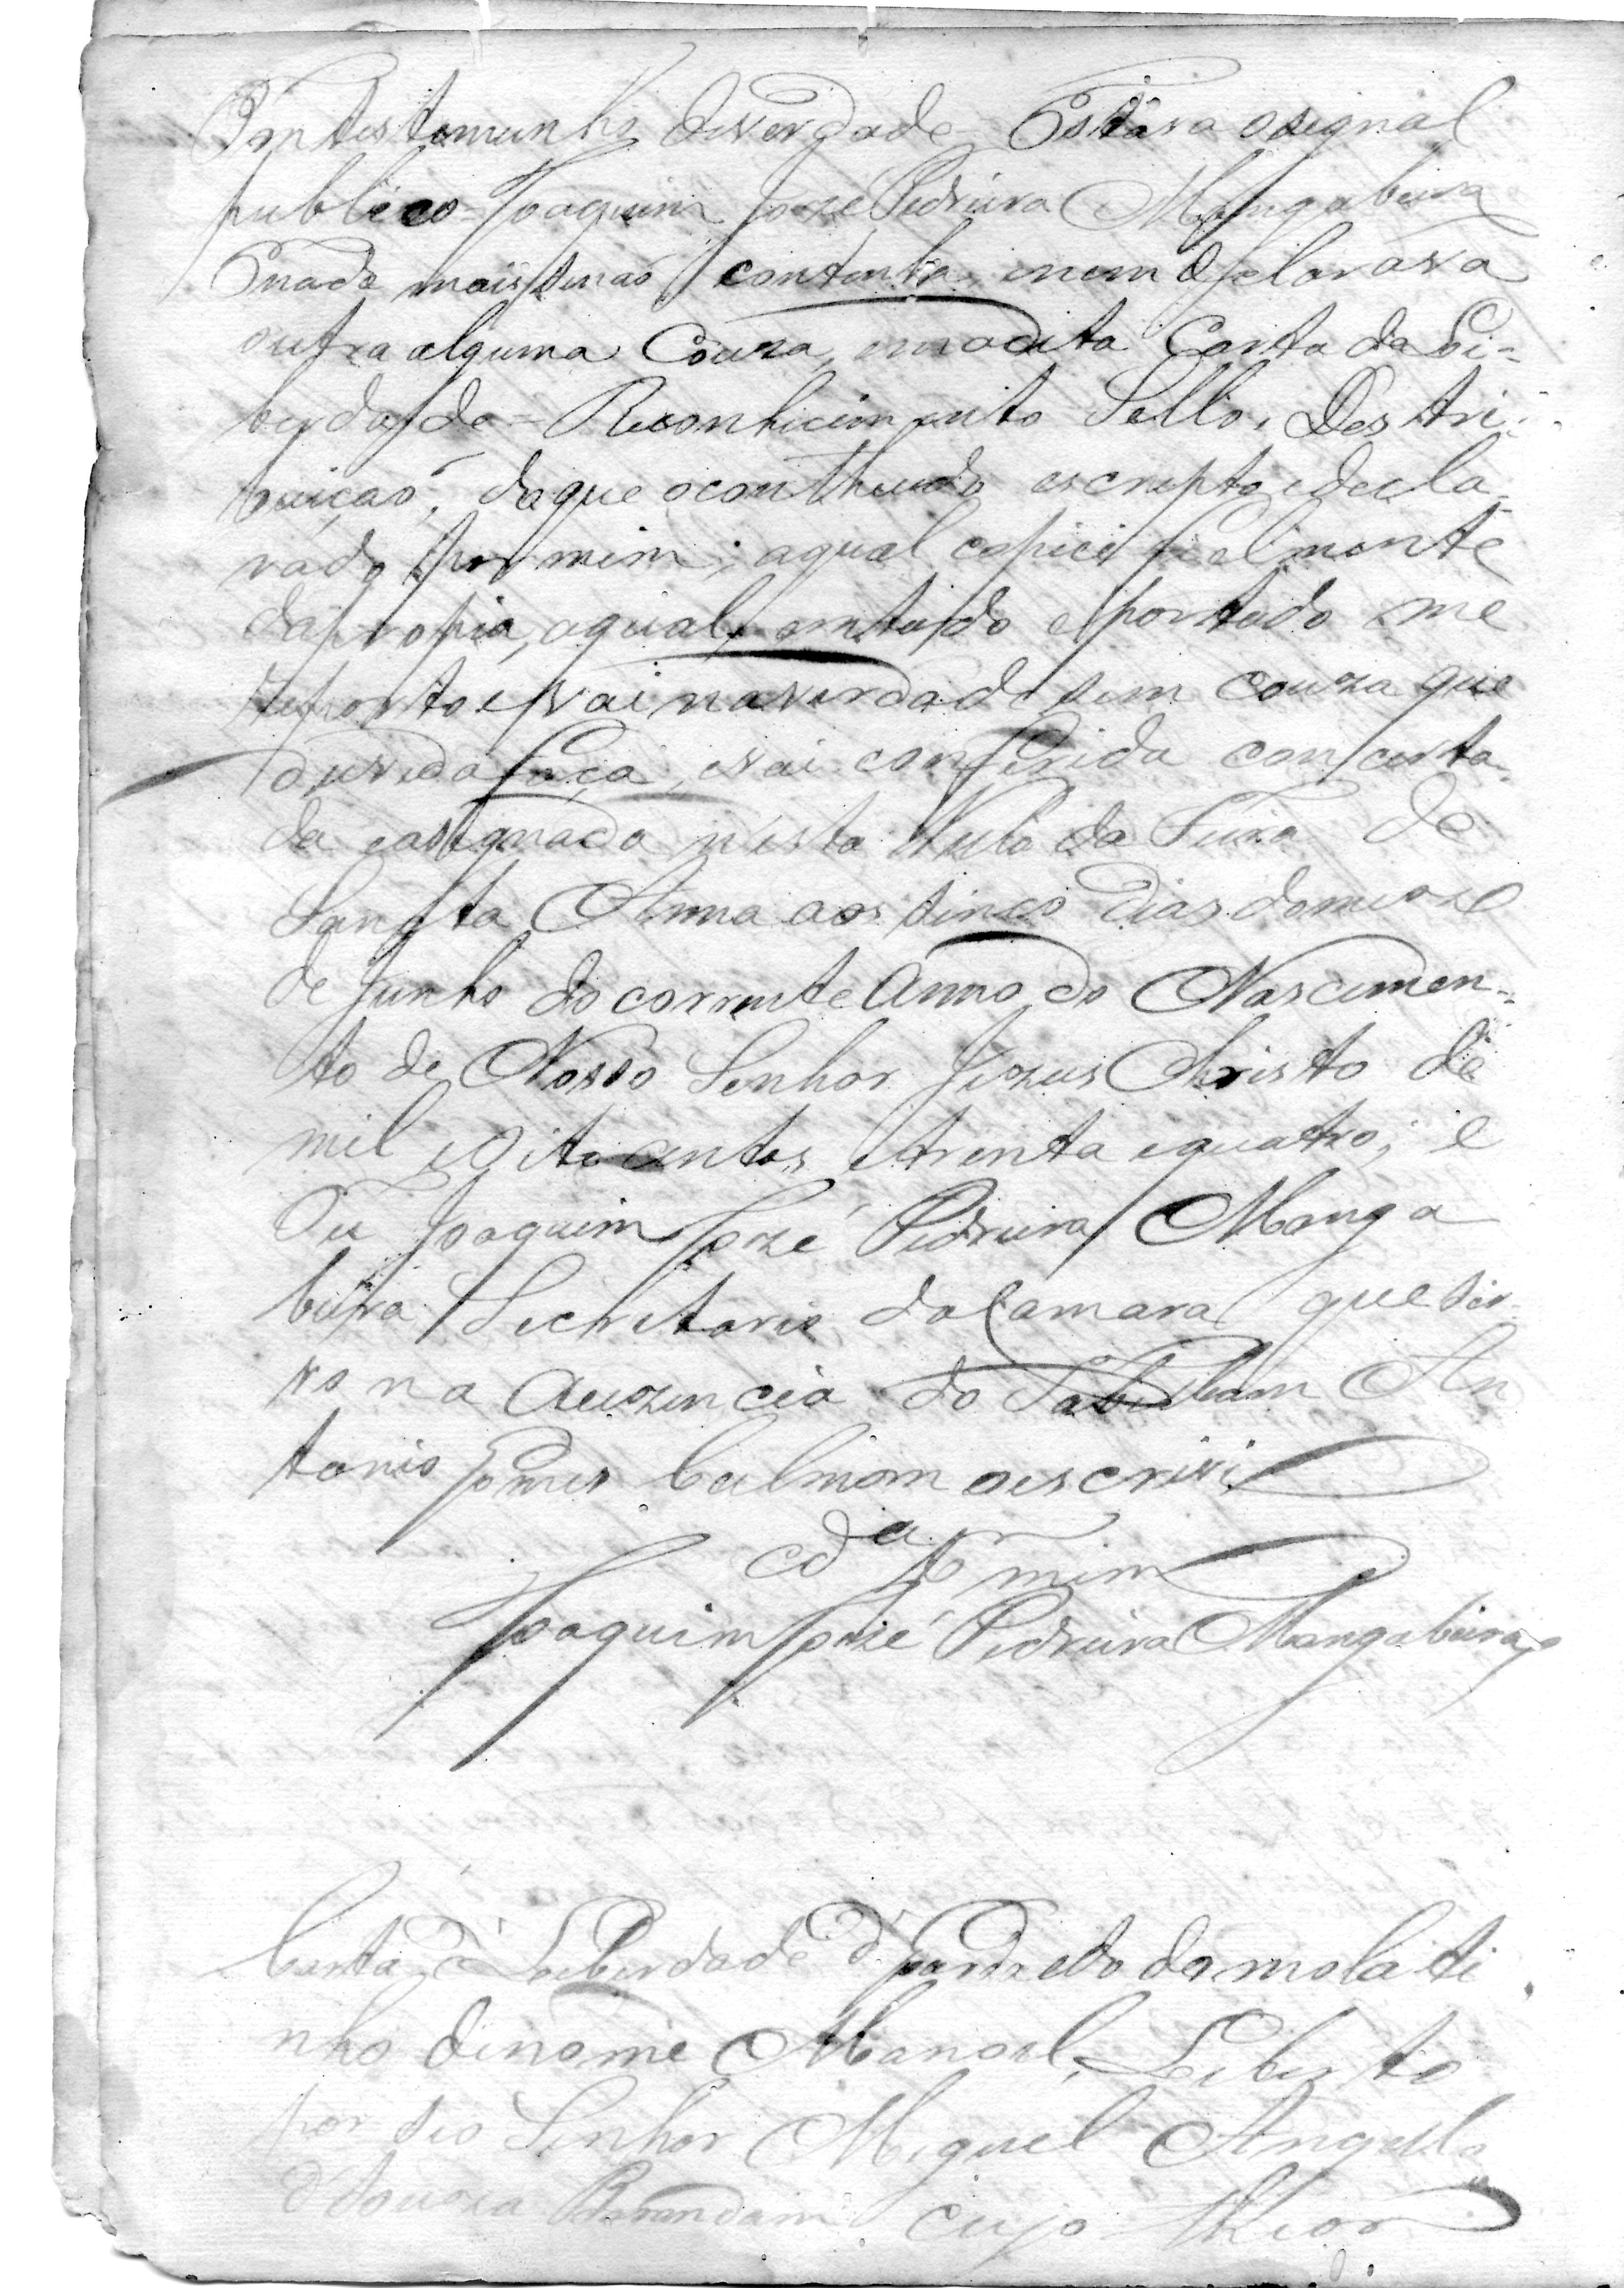 Em testemunho deverdade Estava osignal
publico Joaquim Jozé Pedreira Mangabeira
Enada mais senaõ continha, enem declarava
outra alguma Couza, emadita Carta da Li=
berdade = Reconhicimento Sello, Destri=
buicaõ, do que ocontheudo escripto edecla
rado por mim; aqual copiei fielmente
da propia, aqual emtudo eportudo me
reporto evai naverdade sem couza que
duvida faça, evai conferida concerta
da easignada n'esta Villa da Feira de
Sancta Anna aos sinco dias domez
de Junho do corrente Anno do Nascimen=
to de Nosso Senhor Jezus Christo de
mil eOito centos etrinta equatro; e
Eu Joaquim Jozé Pedreira Manga
beira Secretario da Camara que sir
vo na Auzencia do Tabeliam An
tonio Gomes Calmom oescrivi
cda Pr mim
Joaquim Jozé Pedreira Mangabeira
Carta d' Leiberdade d' pardo do molati
nho denome Manoel, Leiberto
por seo Senhor Miguel Angello
d'Souza Brandam cujo theor